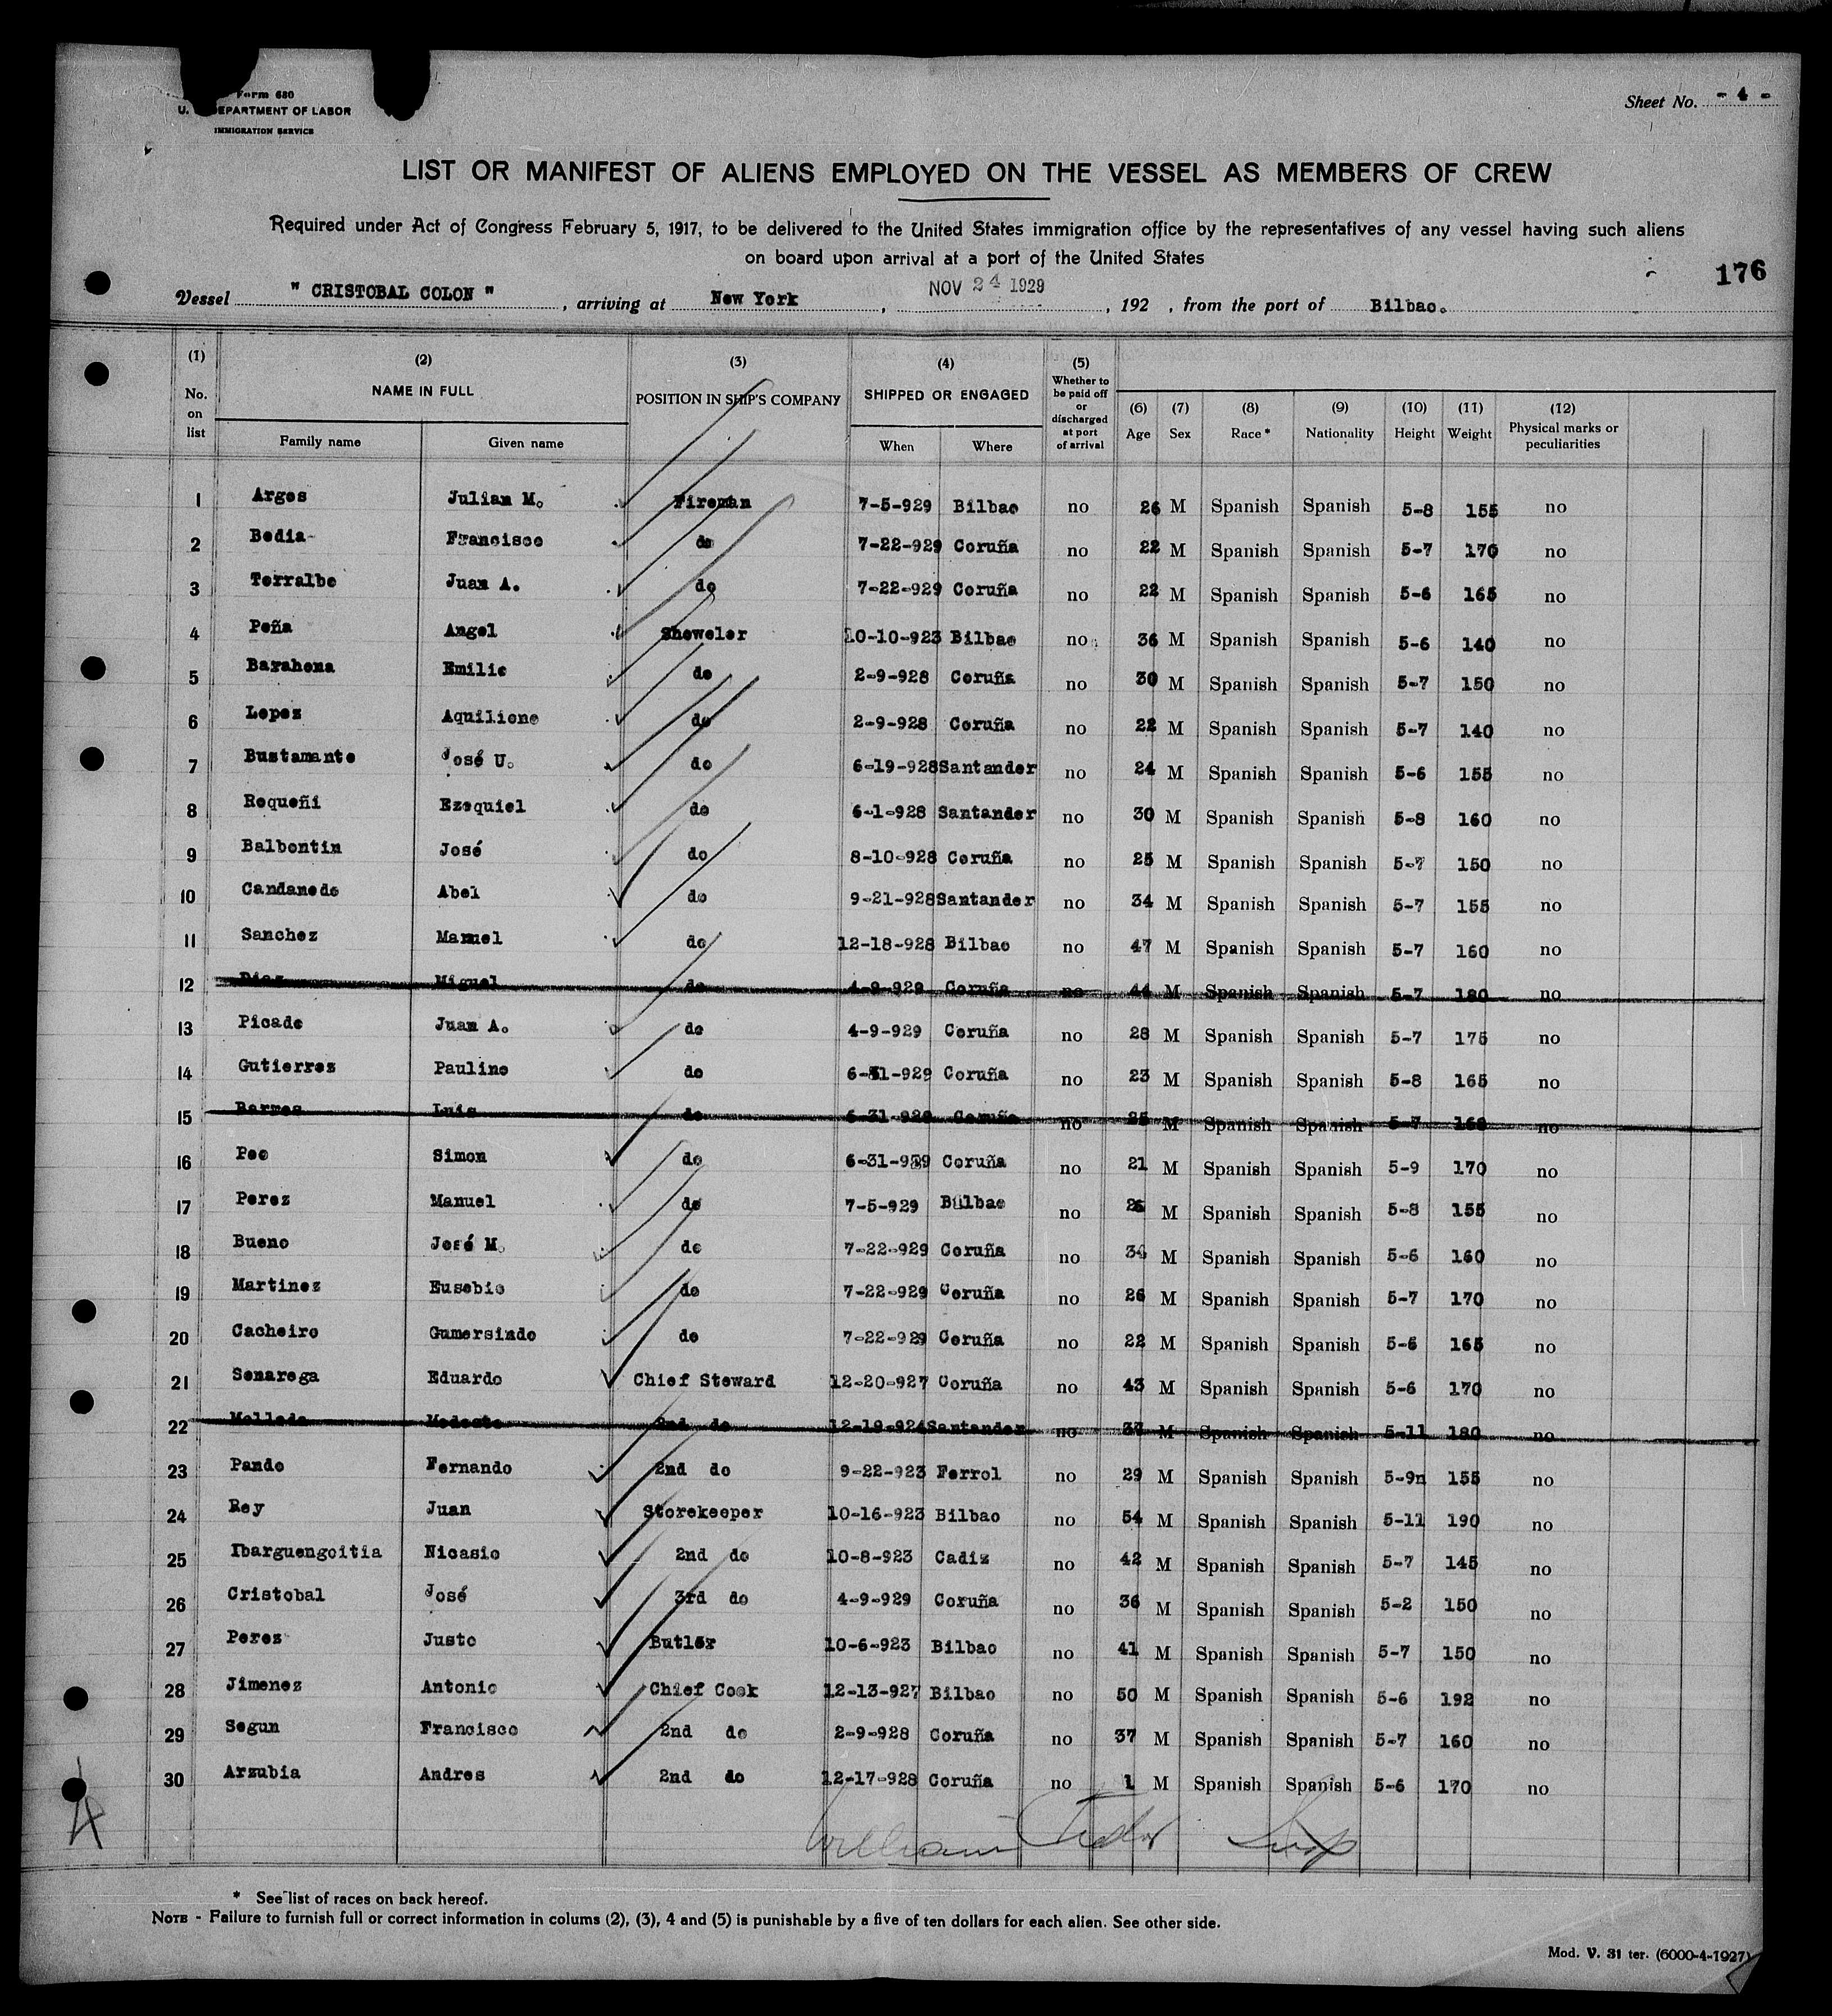 Form 680
U. DEPARTMENT OF LABOR
IMMIGRATION SERVICE
Sheet No. - 4 -
LIST OR MANIFEST OF ALIENS EMPLOYED ON THE VESSEL AS MEMBERS OF CREW
Required under Act of Congress February 5, 1917, to be delivered to the United States immigration office by the representatives of any vessel having such aliens
on board upon arrival at a port of the United States
176
Vessel " CRISTOBAL COLON " , arriving at New York , NOV 24 1929 , 192 , from the port of Bilbao.
(1) No. on list (2) NAME IN FULL Family name Given name (3) POSITION IN SHIP'S COMPANY (4) SHIPPED OR ENGAGED When Where (5) Whether to be paid off or discharged at port of arrival (6) Age (7) Sex (8) Race * (9) Nationality (10) Height (11) Weight (12) Physical marks or peculiarities
1 Arges Julian M. Fireman 7-5-929 Bilbao no 26 M Spanish Spanish 5-8 155 no
2 Bedia Francisco do 7-22-929 Coruña no 22 M Spanish Spanish 5-7 170 no
3 Terralbo Juan A. do 7-22-929 Coruña no 22 M Spanish Spanish 5-6 165 no
4 Peña Angel Showeler 10-10-923 Bilbao no 36 M Spanish Spanish 5-6 140 no
5 Barahona Emilio do 2-9-928 Coruña no 30 M Spanish Spanish 5-7 150 no
6 Lopez Aquilione do 2-9-928 Coruña no 22 M Spanish Spanish 5-7 140 no
7 Bustamante José U. do 6-19-928 Santander no 24 M Spanish Spanish 5-6 155 no
8 Requeñi Ezequiel do 6-1-928 Santander no 30 M Spanish Spanish 5-8 160 no
9 Balbontin José do 8-10-928 Coruña no 25 M Spanish Spanish 5-7 150 no
10 Candanedo Abel do 9-21-928 Santander no 34 M Spanish Spanish 5-7 155 no
11 Sanchez Manuel do 12-18-928 Bilbao no 47 M Spanish Spanish 5-7 160 no
12 Diaz Miguel do 4-9-929 Coruña no 44 M Spanish Spanish 5-7 180 no
13 Picado Juan A. do 4-9-929 Coruña no 28 M Spanish Spanish 5-7 175 no
14 Gutierrez Paulino do 6-31-929 Coruña no 23 M Spanish Spanish 5-8 165 no
15 Luis do 6-31-929 Coruña no 25 M Spanish Spanish 5-7 no
16 Peo Simon do 6-31-929 Coruña no 21 M Spanish Spanish 5-9 170 no
17 Perez Manuel do 7-5-929 Bilbao no M Spanish Spanish 5-8 155 no
18 Bueno José M. do 7-22-929 Coruña no M Spanish Spanish 5-6 160 no
19 Martinez Eusebio do 7-22-929 Coruña no 26 M Spanish Spanish 5-7 170 no
20 Cacheiro Gumersindo do 7-22-929 Coruña no 22 M Spanish Spanish 5-6 165 no
21 Senarega Eduardo Chief Steward 12-20-927 Coruña no 43 M Spanish Spanish 5-6 170 no
22 Modesto 2nd do 12-19-924 Santander no 37 M Spanish Spanish 5-11 180 no
23 Pando Fernando 2nd do 9-22-923 Ferrol no 29 M Spanish Spanish 5-9n 155 no
24 Rey Juan Storekeeper 10-16-923 Bilbao no 54 M Spanish Spanish 5-11 190 no
25 Ibarguengoitia Nicasio 2nd do 10-8-923 Cadiz no 42 M Spanish Spanish 5-7 145 no
26 Cristobal José 3rd do 4-9-929 Coruña no 36 M Spanish Spanish 5-2 150 no
27 Perez Justo Butler 10-6-923 Bilbao no 41 M Spanish Spanish 5-7 150 no
28 Jimenez Antonio Chief Cook 12-13-927 Bilbao no 50 M Spanish Spanish 5-6 192 no
29 Segun Francisco 2nd do 2-9-928 Coruña no 37 M Spanish Spanish 5-7 160 no
30 Arzubia Andres 2nd do 12-17-928 Coruña no 1 M Spanish Spanish 5-6 170 no
4 William
* See list of races on back hereof.
NOTE - Failure to furnish full or correct information in colums (2), (3), 4 and (5) is punishable by a five of ten dollars for each alien. See other side.
Mod. V. 31 ter. (6000-4-1927)